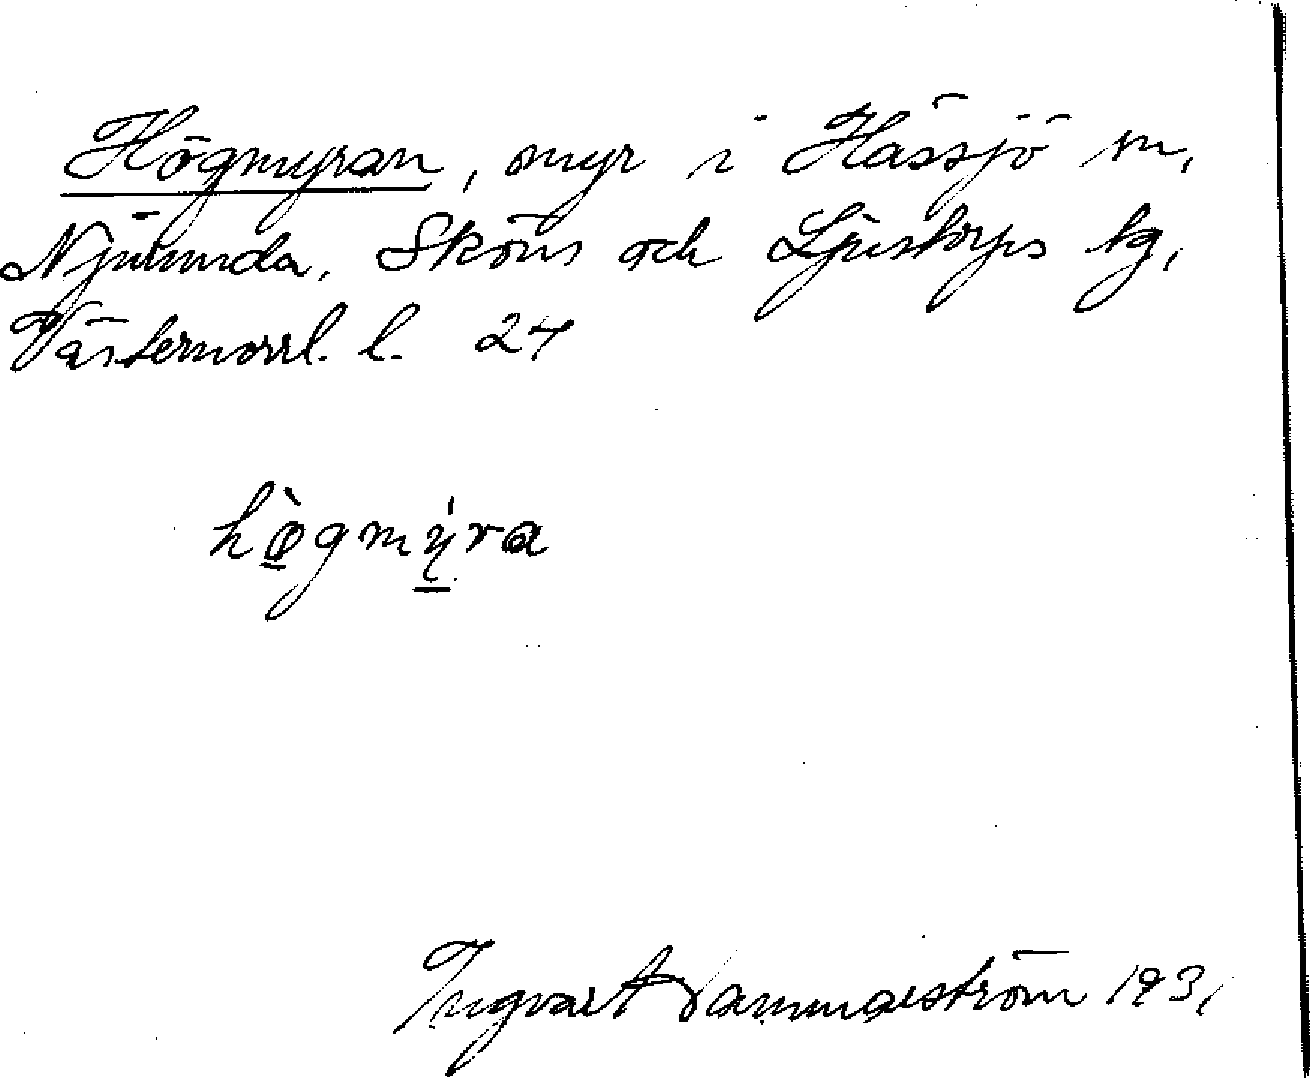 Högmyran, myr i Hässjö sn,
Njurunda, Sköns och Ljustorps tg,
Västernorrl. l. 24
hø̀gmýra
Ingvart Dammarström 1931